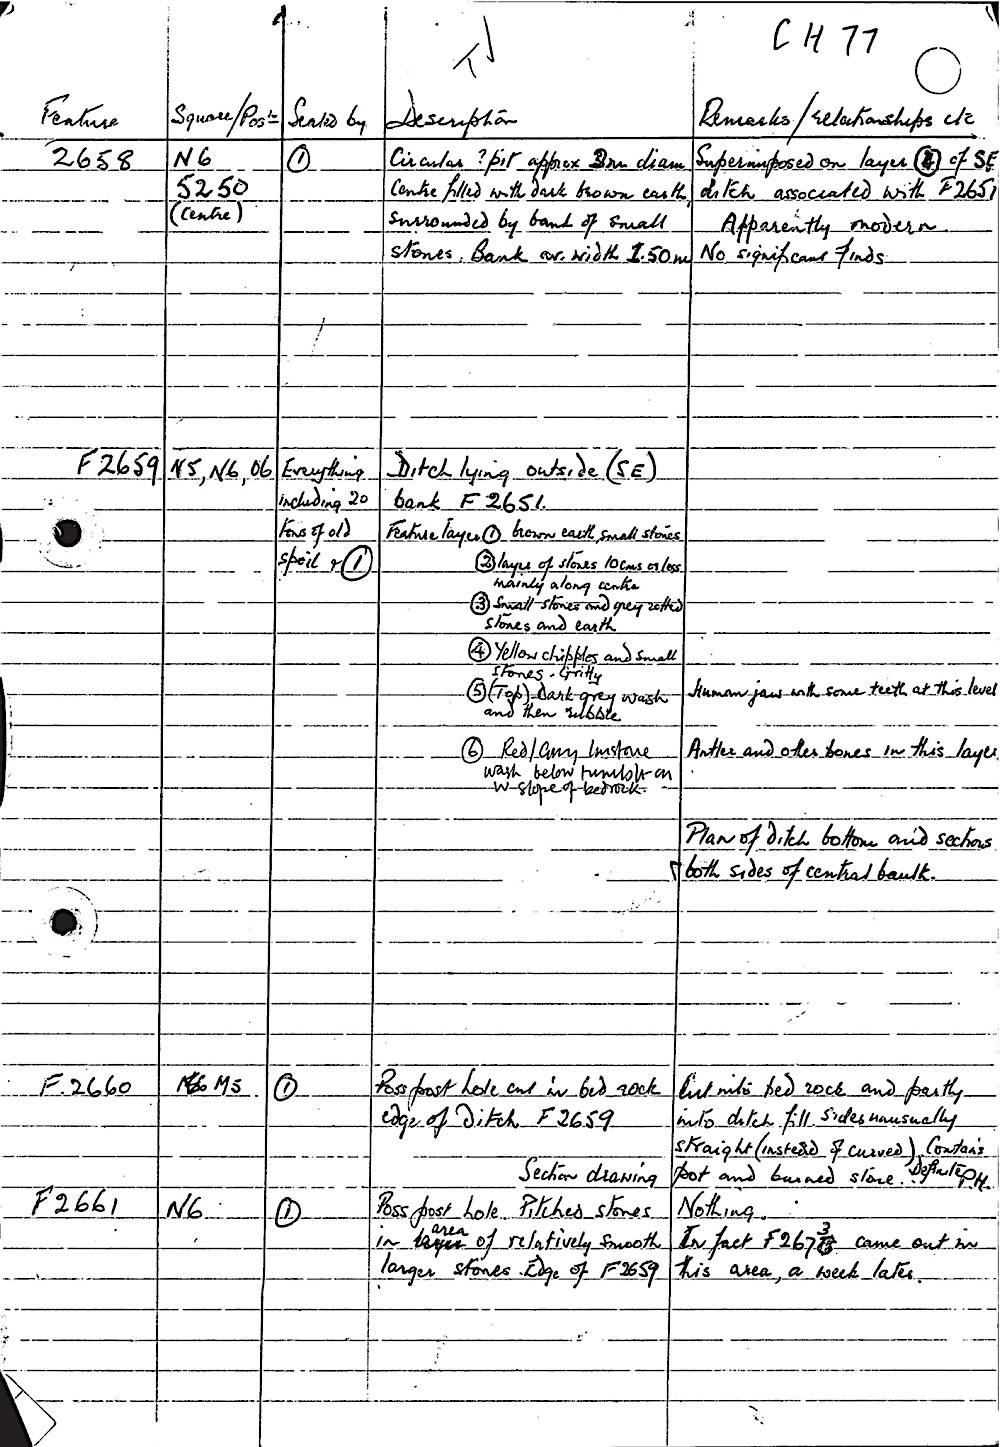 CH 77
TJ
Feature Square/Posn Sealed by Description Remarks/relationships etc
2658 N6 ① Circular ?pit approx 3m diam Superimposed on layer ② of SE
5250 Centre filled with dark brown earth, ditch associated with F2651
(centre) surrounded by bank of small Apparently modern
stones. Bank av. width 1.50m No significant finds
F2659 N5, N6, O6 Everything Ditch lying outside (SE)
including 20 bank F 2651.
tons of old Feature layer ① brown earth, small stones
spoil & ① ② layer of stones 10cms or less
mainly along centre
③ Small stones and grey rotted
stones and earth
④ Yellow chipples and small
stones. Gritty
⑤ (Top) Dark grey wash Human jaw with some teeth at this level
and then rubble
⑥ Red/Grey limstone Antler and other bones in this layer
wash below tumble on
W slope of bedrock.
Plan of ditch bottom and sections
both sides of central baulk.
F.2660 M5 ① Poss post hole cut in bed rock Cut into bed rock and partly
edge of Ditch F2659 into ditch fill. Sides unusually
straight (instead of curved). Contains
Section drawing pot and burned stone. Definite P.H.
F2661 N6 ① Poss post hole. Pitched stones Nothing.
in area of relatively smooth In fact F2673 came out in
larger stones. Edge of F2659 this area, a week later.